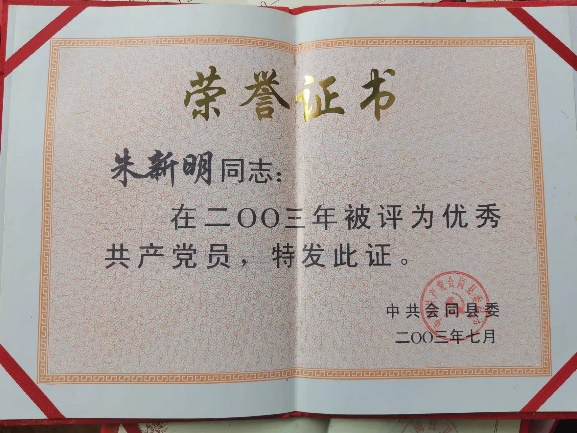 荣誉证书
朱新明同志：
在二〇〇三年被评为优秀
共产党员，特发此证。
中共会同县委
二〇〇三年七月